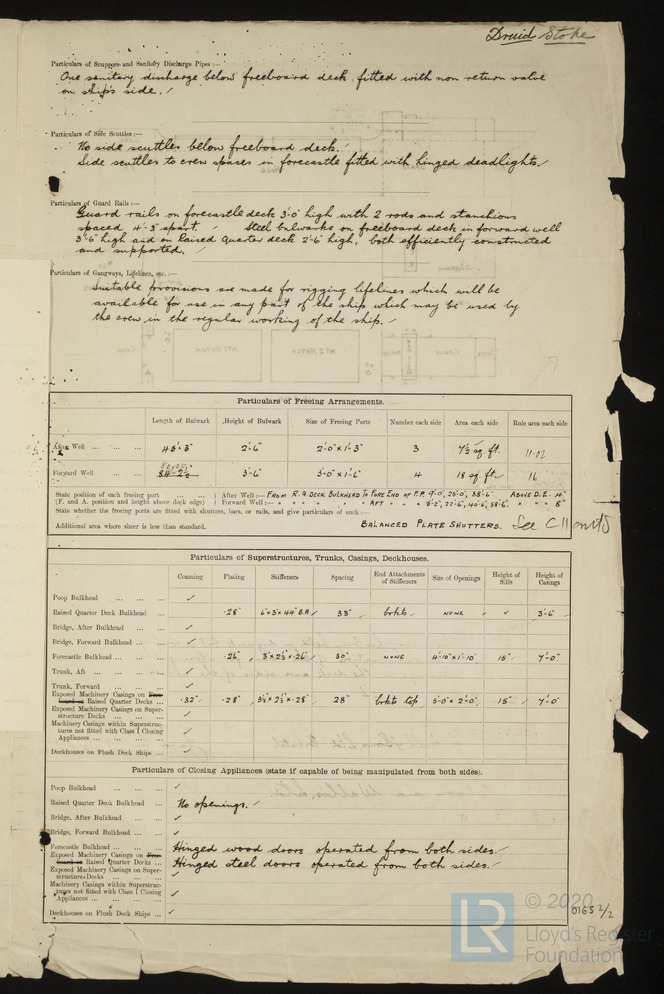 Druid Stoke
Particulars of Scuppers and Sanitary Discharge Pipes :—
One sanitary discharge below freeboard deck, fitted with non return valve
on ship's side. /
Particulars of Side Scuttles :—
No side scuttles below freeboard deck. /
Side scuttles to crew spaces in forecastle fitted with hinged deadlights. /
Particulars of Guard Rails :—
Guard rails on forecastle deck 3'-0" high with 2 rods and stanchions
spaced 4'-3" apart. / Steel bulwarks on freeboard deck in forward well
3'-6" high and on Raised Quarter deck 2'-6" high, both efficiently constructed
and supported. /
Particulars of Gangways, Lifelines, etc. :—
Suitable provisions are made for rigging lifelines which will be
available for use in any part of the ship which may be used by
the crew in the regular working of the ship. /
Particulars of Freeing Arrangements.
Length of Bulwark Height of Bulwark Size of Freeing Ports Number each side Area each side Rule area each side
After Well ... ... ... 43'-3" 2'-6" 2'-0" x 1'-3" 3 7½ sq. ft. 11.02
Forward Well ... ... 3'-6" 3'-0" x 1'-6" 4 18 sq. ft. 16
State position of each freeing port ... ... ... After Well :— From R.Q. Deck Bulkhead To Fore End of F.P. 9'-0", 25'-0", 38'-6" Above D.E.
(F. and A. position and height above deck edge) Forward Well :— " " " " Aft " " 8"
State whether the freeing ports are fitted with shutters, bars, or rails, and give particulars of such :—
Balanced Plate Shutters. See C11
Additional area where sheer is less than standard.
Particulars of Superstructures, Trunks, Casings, Deckhouses.
Coaming Plating Stiffeners Spacing End Attachments of Stiffeners Size of Openings Height of Sills Height of Casings
Poop Bulkhead ... ... ... ✓
Raised Quarter Deck Bulkhead ... .28" 6" x 3" x .44" B.A. / 33" brkts none ✓ 3'-6"
Bridge, After Bulkhead ... ... ✓
Bridge, Forward Bulkhead ... ... ✓
Forecastle Bulkhead ... ... ... .26" 3" x 2½" x .26" / 30" none 4'-10" x 1'-10" 15" 7'-0"
Trunk, Aft ... ... ... ... ✓
Trunk, Forward ... ... ... ✓
Exposed Machinery Casings on Freeboard or Raised Quarter Decks ... .32" .28" 2½" x .28" 28" brkts top 5'-0" x 2'-0" 15" 7'-0"
Exposed Machinery Casings on Superstructure Decks ... ... ... ✓
Machinery Casings within Superstructures not fitted with Class I Closing Appliances ... ... ... ✓
Deckhouses on Flush Deck Ships ... ✓
Particulars of Closing Appliances (state if capable of being manipulated from both sides).
Poop Bulkhead ... ... ... ✓
Raised Quarter Deck Bulkhead ... No openings. /
Bridge, After Bulkhead ... ... ✓
Bridge, Forward Bulkhead ... ... ✓
Forecastle Bulkhead ... ... ... Hinged wood doors operated from both sides. /
Exposed Machinery Casings on Freeboard or Raised Quarter Decks ... Hinged steel doors operated from both sides. /
Exposed Machinery Casings on Superstructure Decks ... ... ... ✓
Machinery Casings within Superstructures not fitted with Class I Closing Appliances ... ... ... ✓
Deckhouses on Flush Deck Ships ... ✓
0165 2/2
LR © 2020
Lloyd's Register
Foundation